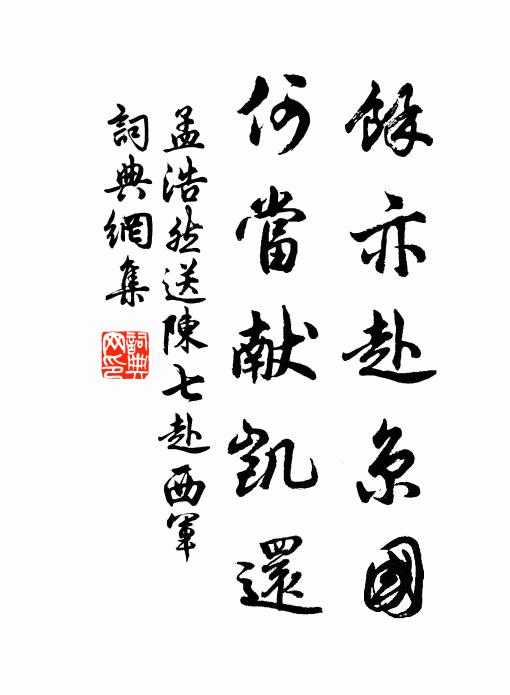 餘亦赴京國
何當献凱還
孟浩然送陳七赴西軍
詞典網集
詞典网印